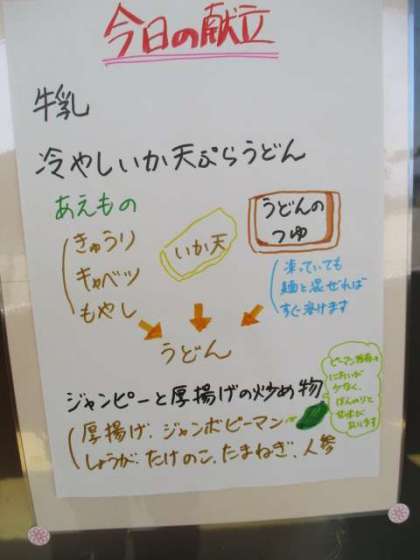 今日の献立
牛乳
冷やしいか天ぷらうどん
あえもの
きゅうり
キャベツ
もやし
いか天
うどんの
つゆ
凍っていても
麺と混ぜれば
すぐ溶けます
うどん
ジャンピーと厚揚げの炒め物
厚揚げ、ジャンボピーマン
しょうが、たけのこ、たまねぎ、人参
ピーマン特有の
においが
少なく、
ほんのりと
甘味が
あります